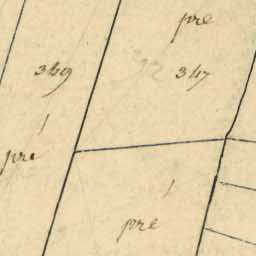 pre
349
347
pre
pre